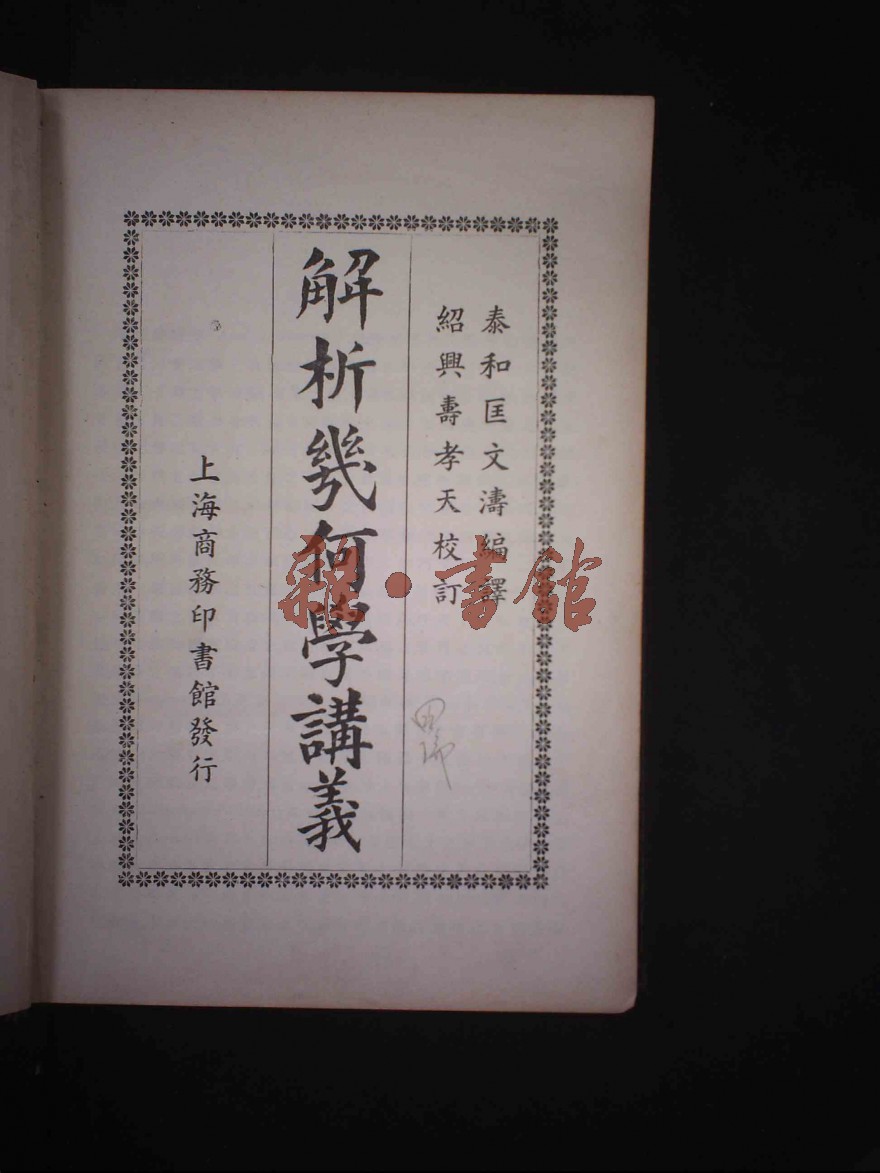 泰和匡文濤編譯
紹興壽孝天校訂
解析幾何學講義
上海商務印書館發行
書館